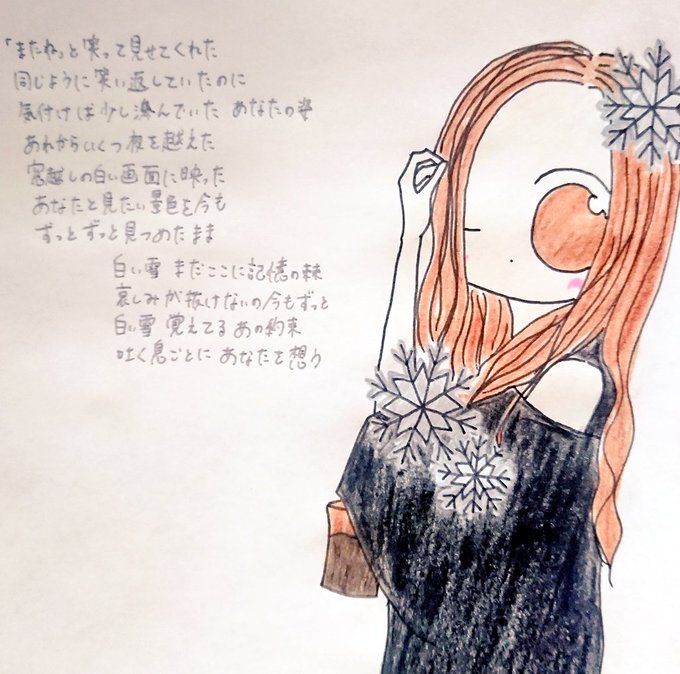 「またね」と笑って見せてくれた
同じように笑い返していたのに
気付けば少し滲んでいた あなたの姿
あれからいくつ夜を越えた
窓越しの白い画面に映った
あなたと見たい景色を今も
ずっとずっと見つめたまま
白い雪 まだここに記憶の棘
哀しみが抜けないの今もずっと
白い雪 覚えてる あの約束
吐く息ごとに あなたを想う